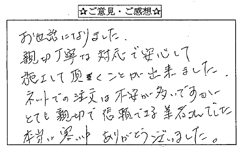 ☆ご意見・ご感想☆
お世話になりました。
親切丁寧な対応で安心して
施工して頂くことが出来ました。
ネットでの注文は不安が多いですが
とても親切で信頼できる業者さんでした
本当に ありがとうございました。